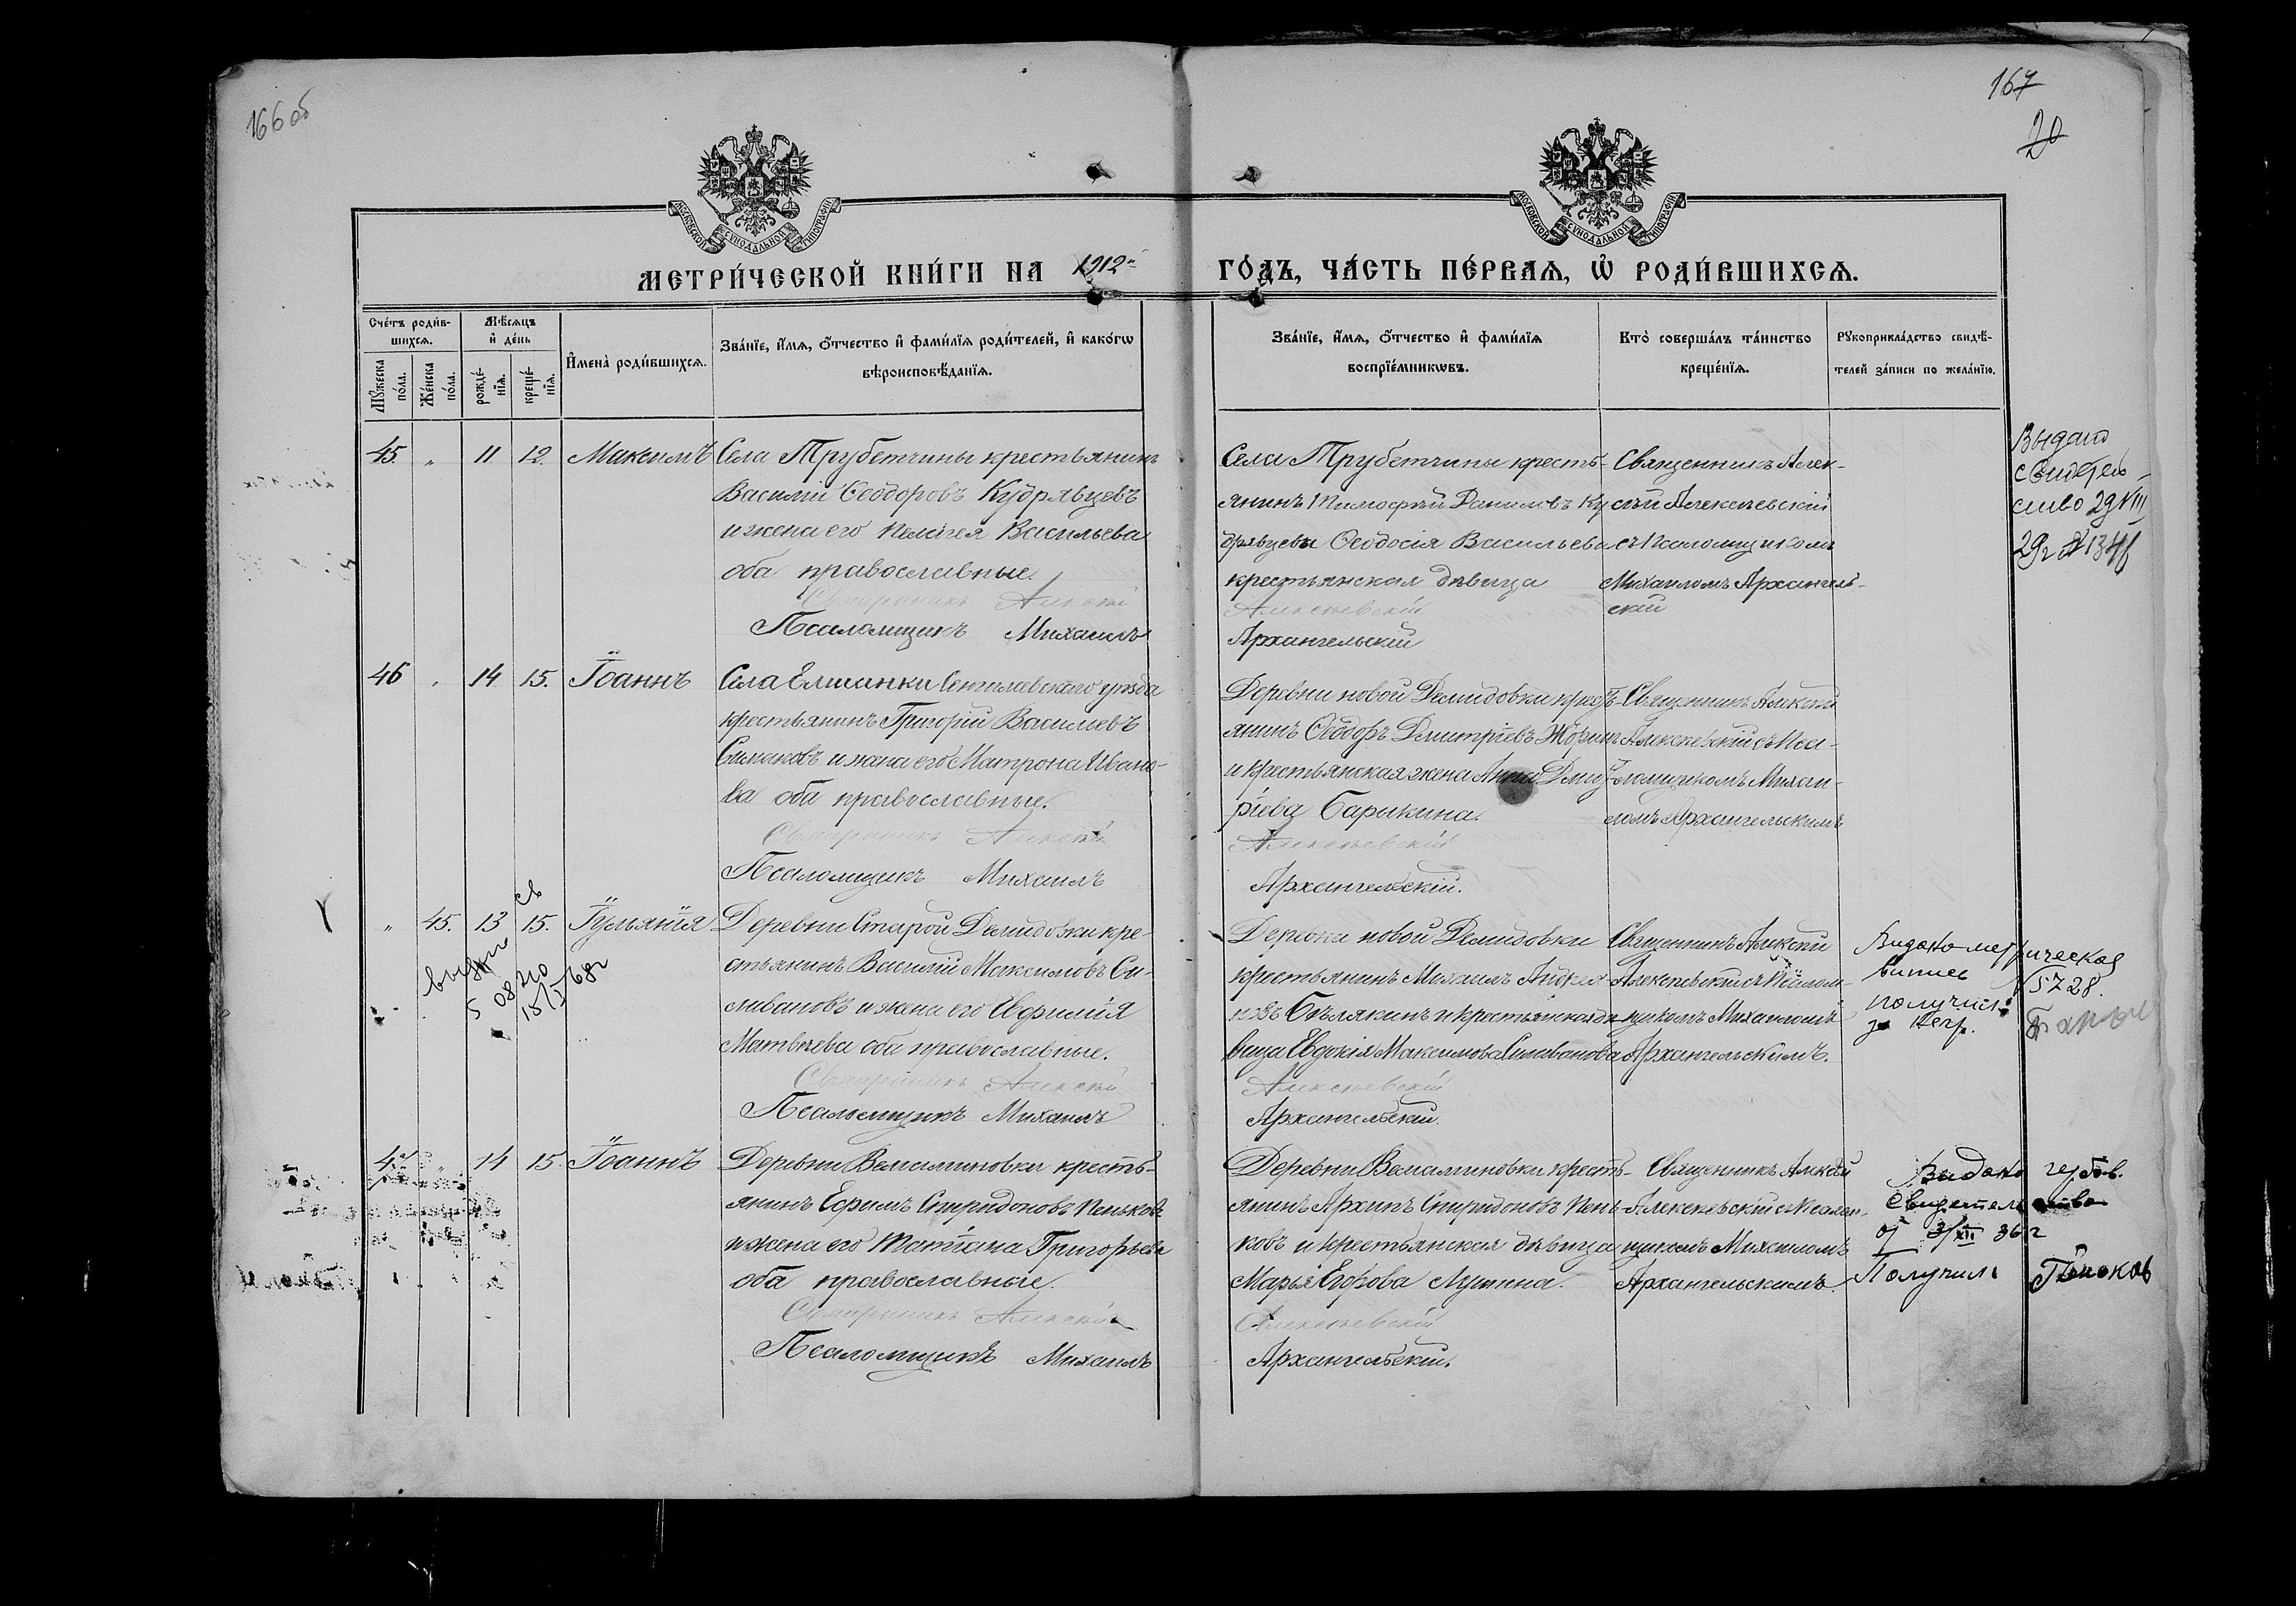 166 об
167
20
МОСКОВСКОЙ СѴНОДАЛЬНОЙ ТИПОГРАФІИ
МОСКОВСКОЙ СѴНОДАЛЬНОЙ ТИПОГРАФІИ
МЕТРИ́ЧЕСКОЙ КНИ́ГИ НА 1912 ГО́ДЪ, ЧА́СТЬ ПЕ́РВАѦ, Ѡ҆ РОДИ́ВШИХСѦ.
Сче́тъ роди́в-
шихсѧ.
Мꙋ́жеска
по́ла.
Же́нска
по́ла.
Мѣ́сѧцъ
и҆ де́нь
рожде́-
нїѧ.
креще́-
нїѧ.
И҆мена̀ роди́вшихсѧ.
Зва́нїе, и҆́мѧ, ѻ҆́тчество и҆ фами́лїѧ роди́телей, и҆ како́гѡ
вѣроисповѣ́данїѧ.
Зва́нїе, и҆́мѧ, ѻ҆́тчество и҆ фами́лїѧ
воспрїе́мникѡвъ.
Кто̀ соверша́лъ та́инство
креще́нїѧ.
Рꙋкоприкла́дство свидѣ́-
телей за́писи по жела́нїю.
45. „ 11. 12. Максимъ
Села Трубетчины крестьянинъ
Василій Ѳеодоровъ Кудрявцевъ
и жена его Пелагея Васильева
оба православные.
Священникъ Алексѣй
Псаломщикъ Михаилъ
Села Трубетчины кресть-
янинъ Тимоѳей Даниловъ Ку
дрявцевъ Ѳеодосія Васильева
крестьянская дѣвица
Алексѣевскій
Архангельскій
Священникъ Алек-
сѣй Алексѣевскій
съ Псаломщикомъ
Михаиломъ Архангель-
скій
Выдано
свидетель
ство 29/VIII
29г
46 „ 14 15. Іоаннъ
Села Елшанки Сенгилеевскаго уѣзда
крестьянинъ Григорій Васильевъ
Симаковъ и жена его Матрона Ивано-
ва оба православные.
Священникъ Алексѣй
Псаломщикъ Михаилъ
Деревни новой Демидовки крест-
янинъ Ѳеодоръ Дмитріевъ
и крестьянская жена Анна Дмит-
ріева Барыкина.
Алексѣевскій
Архангельскій.
Священникъ Алексѣй
Алексѣевскій съ Пса-
ломщикомъ Михаи-
ломъ Архангельскимъ
„ 45. 13 15. Іуліанія
Деревни Старой Демидовки кре-
стьянинъ Василій Максимовъ Си-
ливановъ и жена его Евфимія
Матвѣева оба православные.
Священникъ Алексѣй
Псаломщикъ Михаилъ
Деревни новой Демидовки
крестьянинъ Михаилъ Андрея-
новъ Бѣлякинъ и крестьянская дѣ
вица Евдокія Максимова Силиванова
Алексѣевскій
Архангельскій.
Священникъ Алексѣй
Алексѣевскій съ Псалом-
щикомъ Михаиломъ
Архангельскимъ.
Видано метрическая
випись 5728.
получил
47 „ 14 15. Іоаннъ
Деревни Вельяминовки кресть-
янинъ Ефимъ Спиридоновъ Пеньковъ
и жена его Татіана Григорьева
оба православные.
Священникъ Алексѣй
Псаломщикъ Михаилъ
Деревни Вельяминовки кресть-
янинъ Архипъ Спиридоновъ Пень-
ковъ и крестьянская дѣвица
Марья Егорова Лушина.
Алексѣевскій
Архангельскій.
Священникъ Алексѣй
Алексѣевскій съ Псалом-
щикомъ Михаиломъ
Архангельскимъ.
Видано гербов.
Свидетельство
от 3/XII 36 г
Получил Пеньков